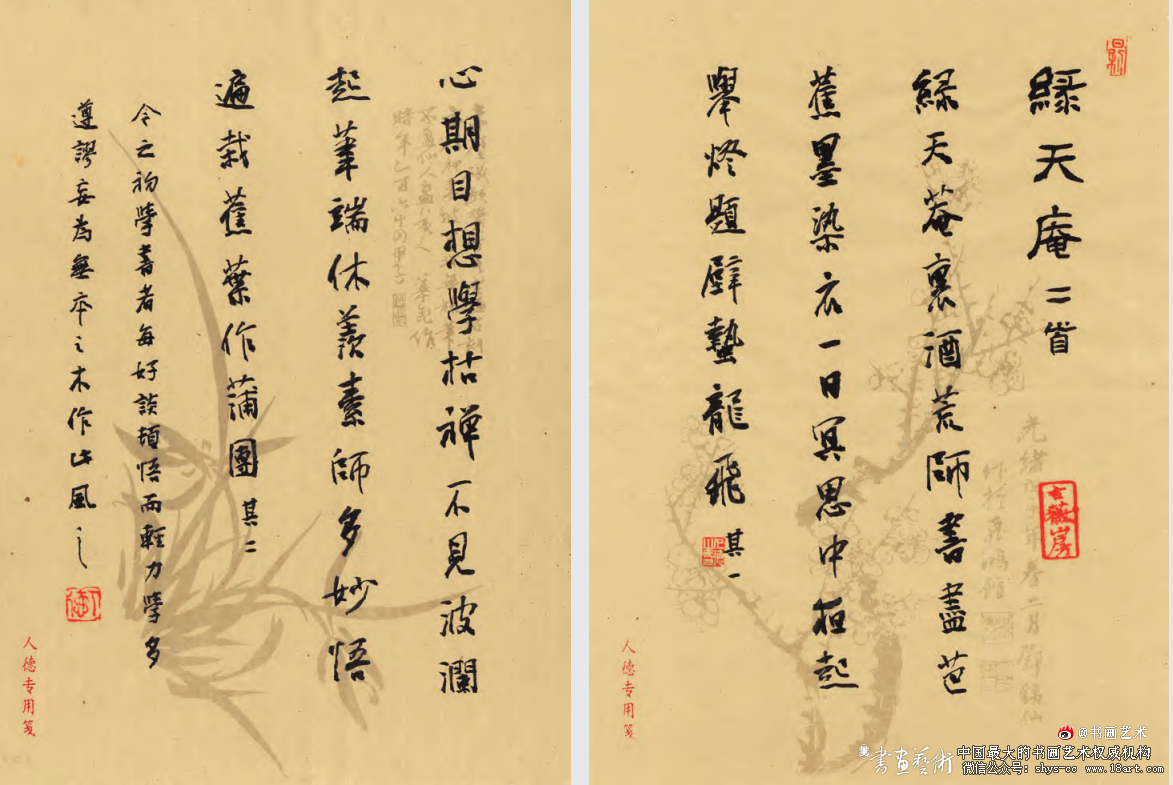 緑天庵二首
緑天菴裏酒荒師書盡芭
蕉墨染衣一日冥思中夜起
舉燈題壁蟄龍飛其一
心期目想學枯禅不見波瀾
起筆端休羨素師多妙悟
遍栽蕉葉作蒲團其二
今之初學書者每好談頓悟而輕力學多
遵謬妄為無本之木作此風之
人德专用笺
人德专用笺
@书画艺术
書畫藝術
中国最大的书画艺术权威机构
微信公众号: shys-cc www.18art.com